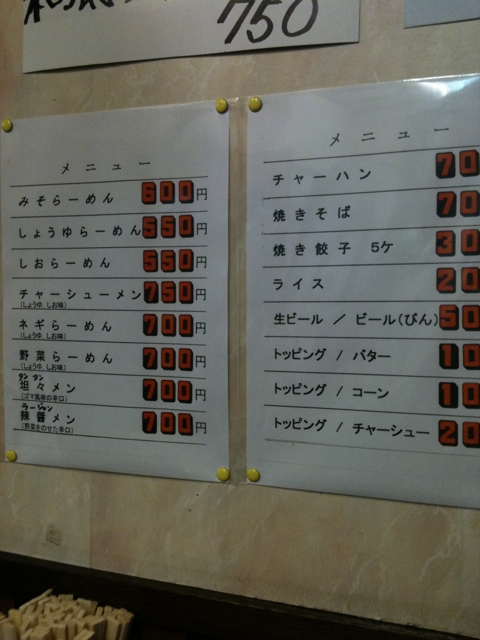 750
メニュー
みそらーめん 600円
しょうゆらーめん 550円
しおらーめん 550円
チャーシューメン 750円
(しょうゆ, しお味)
ネギらーめん 700円
(しょうゆ, しお味)
野菜らーめん 700円
(しょうゆ, しお味)
タン タン
坦々メン 700円
(ゴマ風味の辛口)
ラージャン
辣醤メン 700円
(野菜をのせた辛口)
メニュー
チャーハン 70
焼きそば 70
焼き餃子 5ケ 30
ライス 20
生ビール / ビール(びん) 50
トッピング / バター 10
トッピング / コーン 10
トッピング / チャーシュー 20